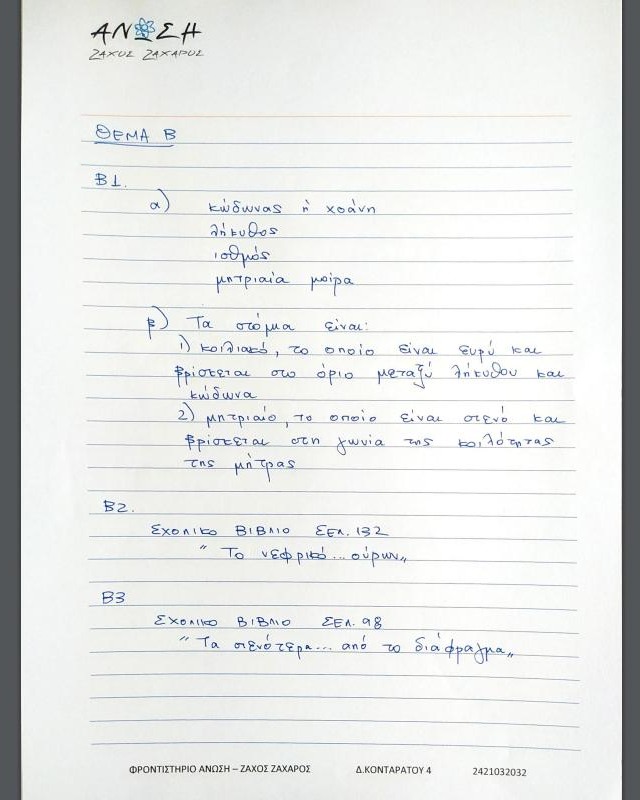 ΑΝΩΣΗ
ΖΑΧΟΣ ΖΑΧΑΡΟΣ
ΘΕΜΑ Β
Β1.
α) κώδωνας ή χοάνη
λήκυθος
ισθμός
μητριαία μοίρα
β) Τα στόμια είναι:
1) κοιλιακό, το οποίο είναι ευρύ και
βρίσκεται στο όριο μεταξύ λήκυθου και
κώδωνα
2) μητριαίο, το οποίο είναι στενό και
βρίσκεται στη γωνία της κοιλότητας
της μήτρας
Β2.
ΣΧΟΛΙΚΟ ΒΙΒΛΙΟ ΣΕΛ. 132
"Το νεφρικό... ούρων"
Β3
ΣΧΟΛΙΚΟ ΒΙΒΛΙΟ ΣΕΛ. 98
"Τα στενότερα... από το διάφραγμα"
ΦΡΟΝΤΙΣΤΗΡΙΟ ΑΝΩΣΗ – ΖΑΧΟΣ ΖΑΧΑΡΟΣ Δ.ΚΟΝΤΑΡΑΤΟΥ 4 2421032032